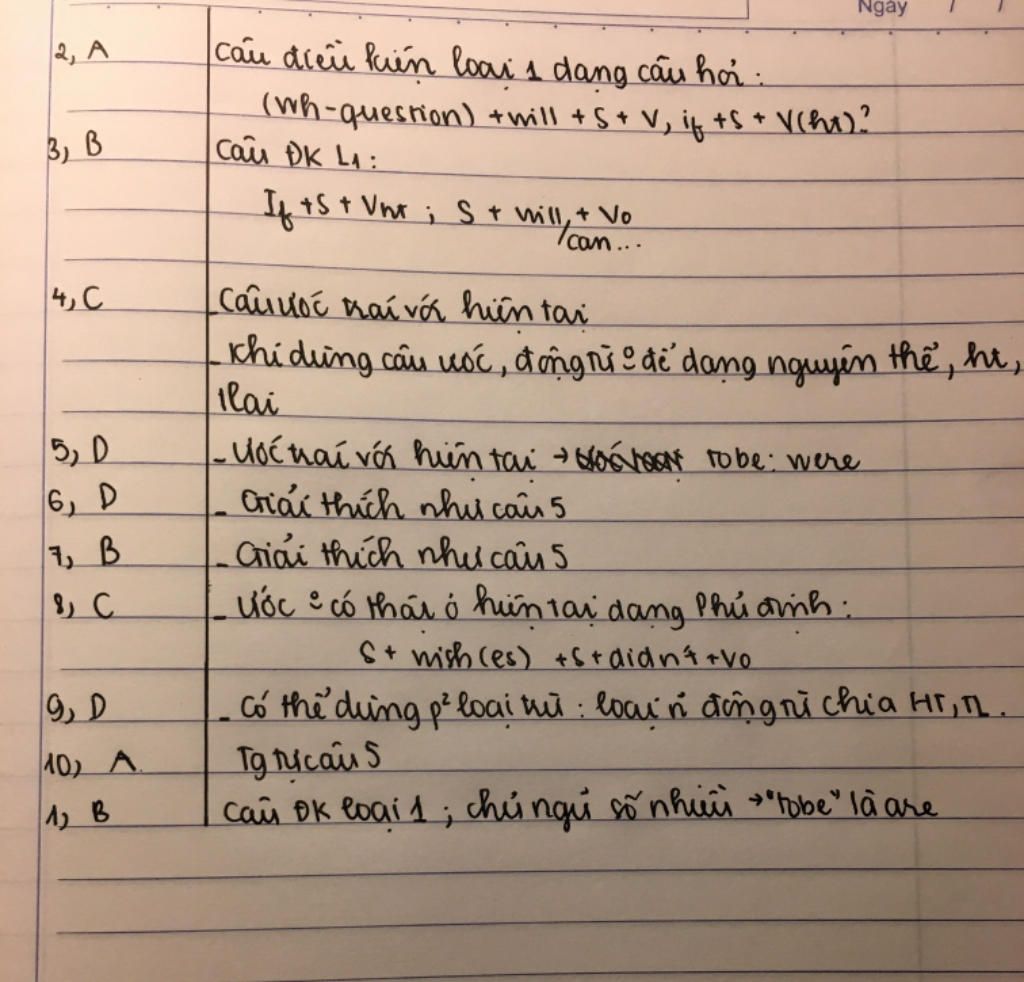 Ngày / /
2, A Câu điều kiện loại 1 dạng câu hỏi :
(Wh-question) + will + S + V, if + S + V(ht)?
3, B Câu ĐK L1 :
If + S + Vht ; S + will + Vo
/can...
4, C Câu ước trái với hiện tại
- Khi dùng câu ước, động từ o để dạng nguyên thể, ht,
tlai
5, D - Ước trái với hiện tại → tobe: were
6, D - Giải thích như câu 5
7, B - Giải thích như câu 5
8, C - Ước o có thật ở hiện tại dạng Phủ định :
S + wish(es) + S + didn't + Vo
9, D - Có thể dùng p² loại trừ : loại n động từ chia HT, TL.
10, A. Tg tự câu 5
1, B Câu ĐK loại 1 ; chủ ngữ số nhiều → "tobe" là are